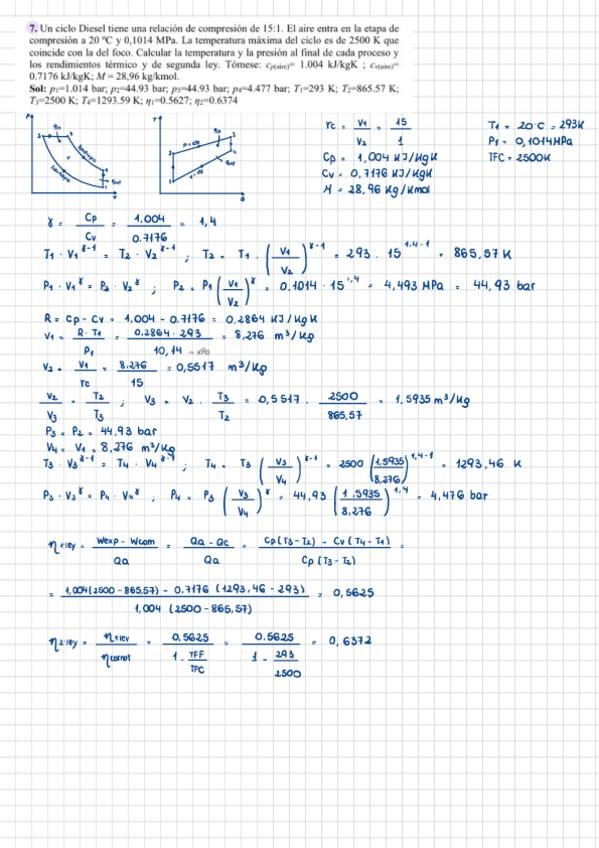 7. Un ciclo Diesel tiene una relación de compresión de 15:1. El aire entra en la etapa de
compresión a 20 ºC y 0,1014 MPa. La temperatura máxima del ciclo es de 2500 K que
coincide con la del foco. Calcular la temperatura y la presión al final de cada proceso y
los rendimientos térmico y de segunda ley. Tómese: cp(aire)= 1.004 kJ/kgK ; cv(aire)=
0.7176 kJ/kgK; M = 28,96 kg/kmol.
Sol: p1=1.014 bar; p2=44.93 bar; p3=44.93 bar; p4=4.477 bar; T1=293 K; T2=865.57 K;
T3=2500 K; T4=1293.59 K; η1=0.5627; η2=0.6374
rc = V1/V2 = 15/1
Cp = 1,004 KJ/KgK
Cv = 0,7176 KJ/KgK
M = 28,96 Kg/Kmol
T1 = 20ºC = 293K
P1 = 0,1014MPa
TFC = 2500K
γ = Cp/Cv = 1.004/0.7176 = 1,4
T1 · V1^γ-1 = T2 · V2^γ-1 ; T2 = T1 · (V1/V2)^γ-1 = 293 · 15^1,4-1 = 865,57 K
P1 · V1^γ = P2 · V2^γ ; P2 = P1 (V1/V2)^γ = 0,1014 · 15^1,4 = 4,493 MPa = 44,93 bar
R = Cp - Cv = 1,004 - 0.7176 = 0.2864 KJ/KgK
V1 = R · T1/P1 = 0.2864 · 293/10,14 → KPa = 8,276 m³/Kg
V2 = V1/rc = 8.276/15 = 0,5517 m³/Kg
V2/V3 = T2/T3 ; V3 = V2 · T3/T2 = 0,5517 · 2500/865,57 = 1,5935 m³/Kg
P3 = P2 = 44,93 bar
V4 = V1 = 8,276 m³/Kg
T3 · V3^γ-1 = T4 · V4^γ-1 ; T4 = T3 (V3/V4)^γ-1 = 2500 (1.5935/8.276)^1,4-1 = 1293,46 K
P3 · V3^γ = P4 · V4^γ ; P4 = P3 (V3/V4)^γ = 44,93 (1,5935/8.276)^1,4 = 4,476 bar
η1ªley = Wexp - Wcom/Qa = Qa - Qc/Qa = Cp(T3-T2) - Cv(T4-T1)/Cp(T3-T2) =
= 1,004(2500-865,57) - 0.7176 (1293,46 - 293)/1,004 (2500-865,57) = 0,5625
η2ªley = η1ªley/ηcarnot = 0,5625/1 - TFF/TFC = 0.5625/1 - 293/2500 = 0,6372